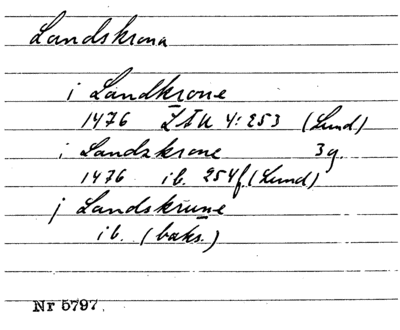 Landskrona
i Landkrone
1476 LÄU 4:253 (Lund)
i Landzkrone 3g.
1476 ib. 254f (Lund)
j Landskrune
ib. (baks.)
Nr 5797.